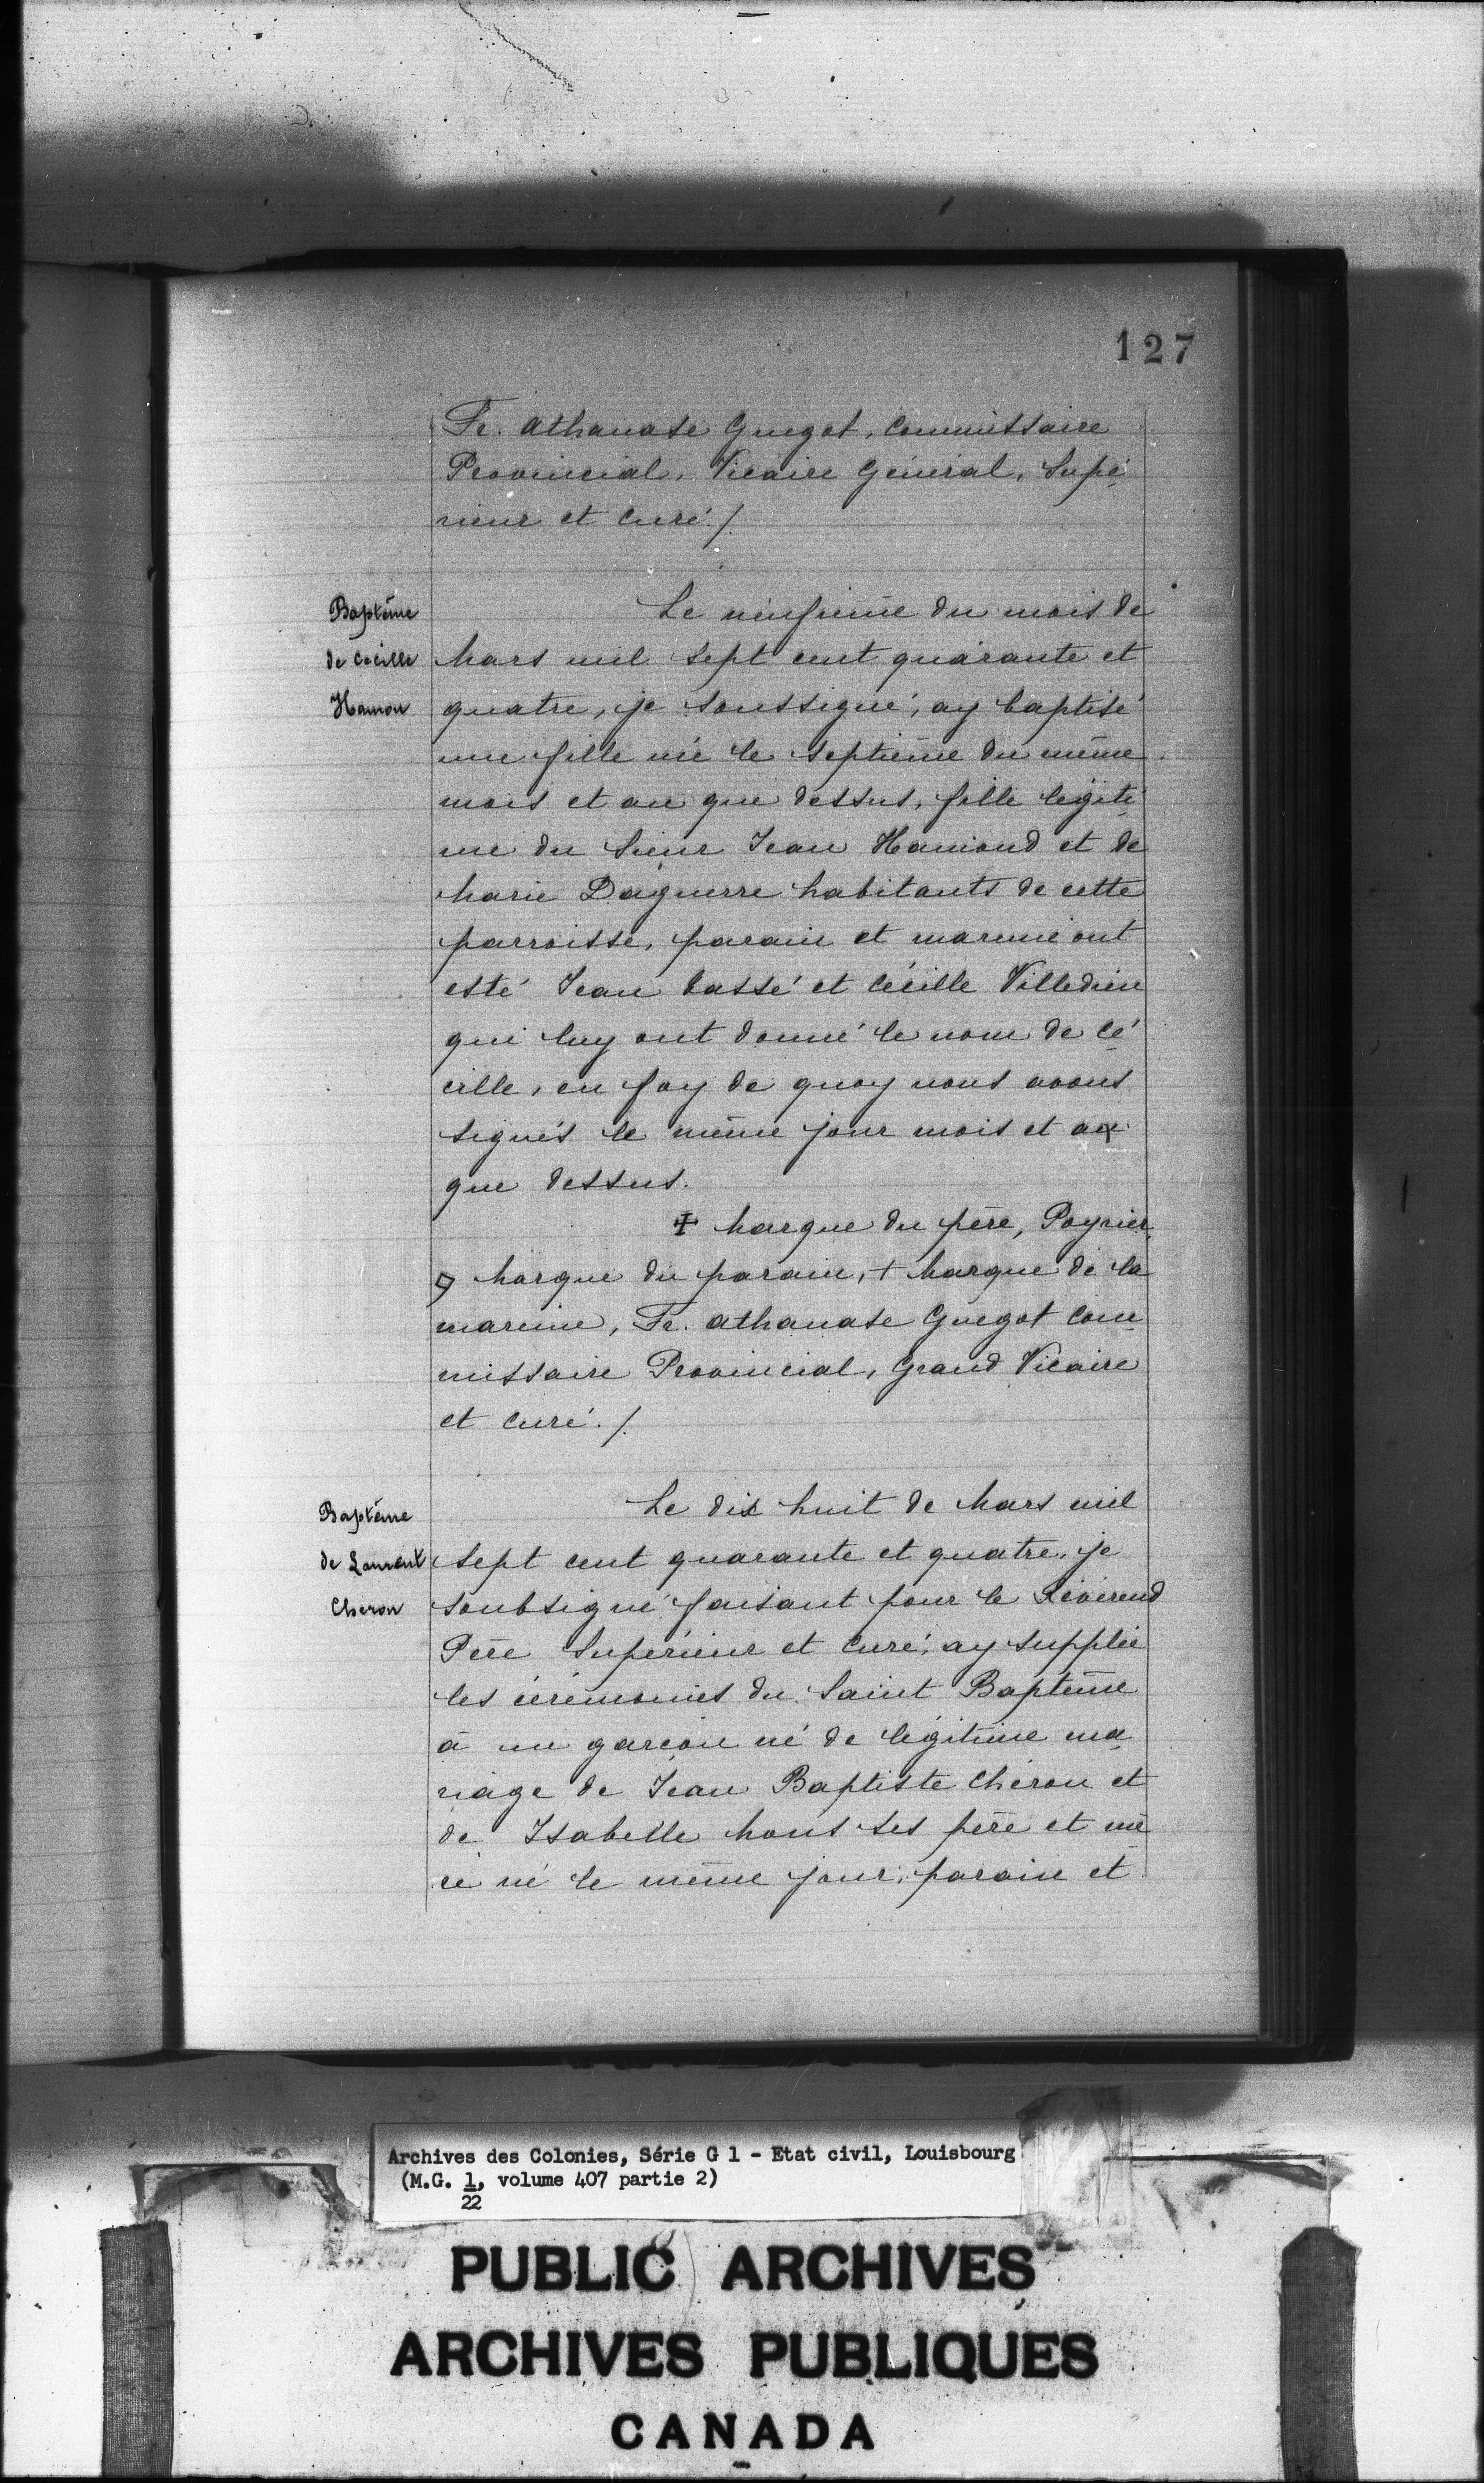 127
Fr. Athanase Guegot, Commissaire
Provincial, Vicaire Général, Supé
rieur et curé ./.
Baptême
de Cécille
Hamon
Le neufième du mois de
Mars mil sept cent quarante et
quatre, je soussigné, ay baptisé
une fille née le septième du même
mois et an que dessus, fille légiti
me du Sieur Jean Hamond et de
Marie Daguerre habitants de cette
parroisse, parain et mareine ont
esté Jean Bassé et Cécille Villedieu
qui luy ont donné le nom de Cé
cille, en foy de quoy nous avons
signés le même jour mois et an
que dessus.
‡ Marque du père, Poyrier,
Marque du parain, + Marque de la
mareine, Fr. Athanase Guegot Com
missaire Provincial, Grand Vicaire
et curé ./.
Baptême
de Laurent
Cheron
Le dix huit de Mars mil
sept cent quarante et quatre, je
soubsigné faisant pour le Révérend
Père Supérieur et curé, ay supplée
les cérémonies du Saint Baptême
à un garçon né de légitime ma
riage de Jean Baptiste Chéron et
de Isabelle Mous ses père et mè
re né le même jour, parain et
Archives des Colonies, Série G 1 - Etat civil, Louisbourg
(M.G. 1, volume 407 partie 2)
22
PUBLIC ARCHIVES
ARCHIVES PUBLIQUES
CANADA